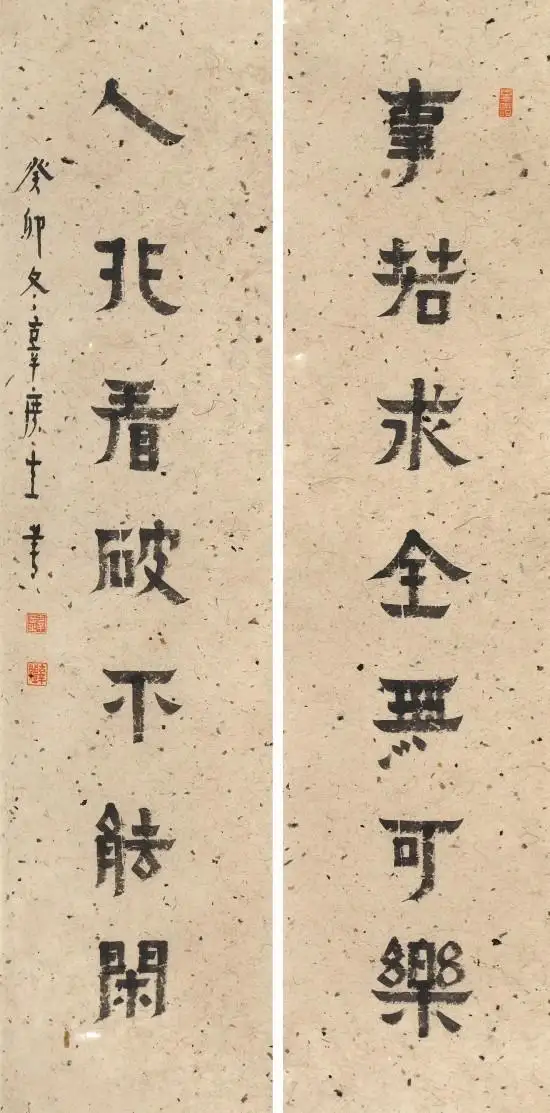 事若求全無可樂
人非看破不能閑
癸卯冬